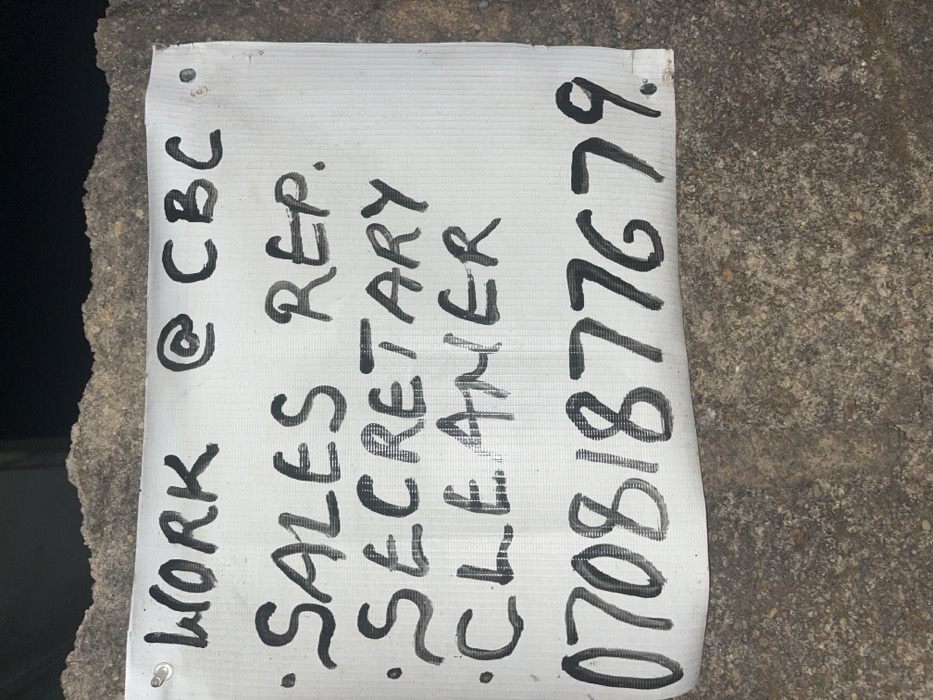 WORK @ CBC
. SALES REP.
. SECRETARY
. CLEANER
07081877679